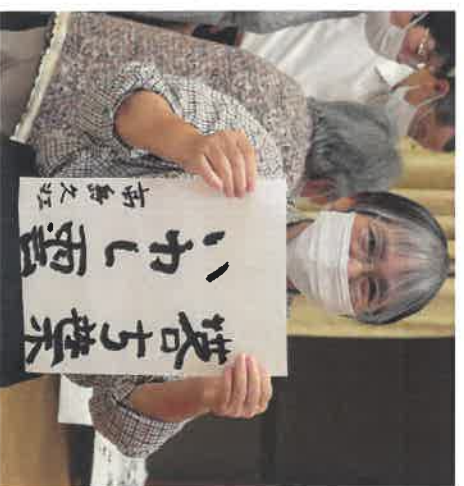 落ち葉
いわし雲
島久江